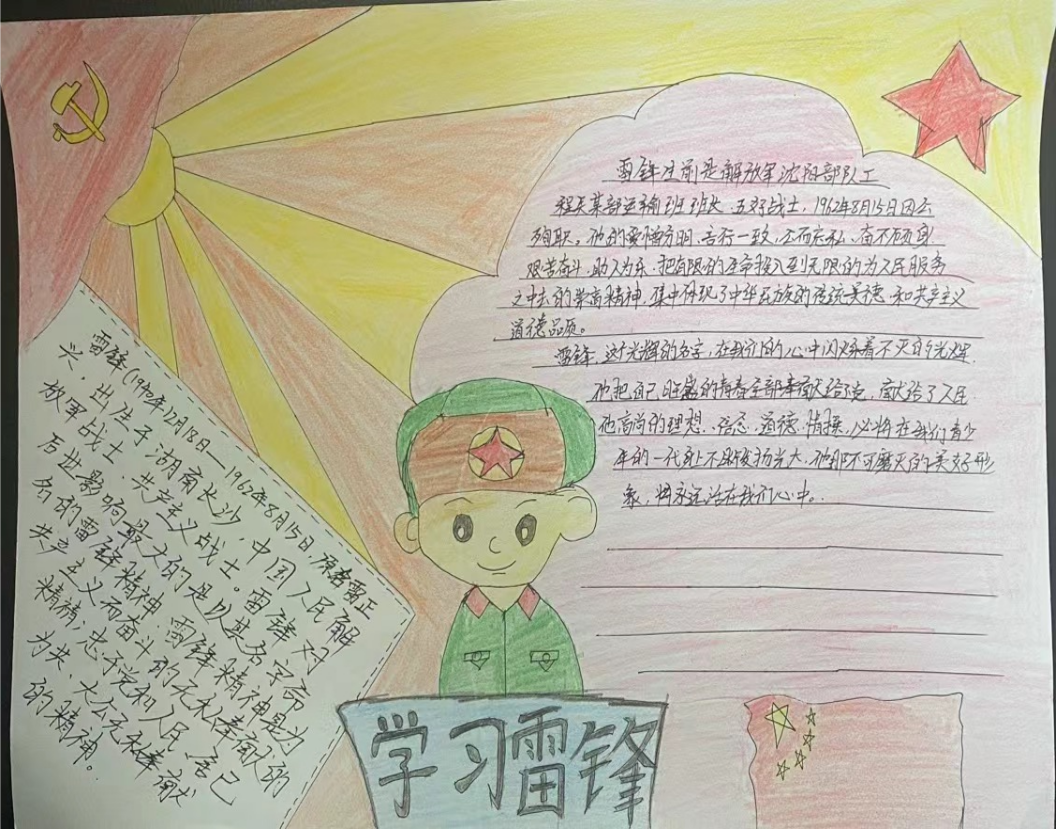 雷锋(1940年12月18日—1962年8月15日,原名雷正
兴,出生于湖南长沙,中国人民解
放军战士、共产主义战士。雷锋对
后世影响最大的是以其名字命
名的雷锋精神。雷锋精神是为
共产主义而奋斗的无私奉献的
精神;忠于党和人民、舍己
为共、大公无私奉献
的精神。
雷锋生前是解放军沈阳部队工
程兵某部运输班班长、五好战士,1962年8月15日因公
殉职。他的爱憎分明、言行一致、公而忘私、奋不顾身
艰苦奋斗、助人为乐,把有限的生命投入到无限的为人民服务
之中去的崇高精神,集中体现了中华民族的传统美德、和共产主义
道德品质。
雷锋,这个光辉的名字,在我们的心中闪烁着不灭的光辉
他把自己旺盛的青春全部奉献给党,献给了人民
他高尚的理想、信念、道德、情操,必将在我们青少
年的一代身上不断发扬光大,他那不可磨灭的美好形
象,将永远活在我们心中。
学习雷锋